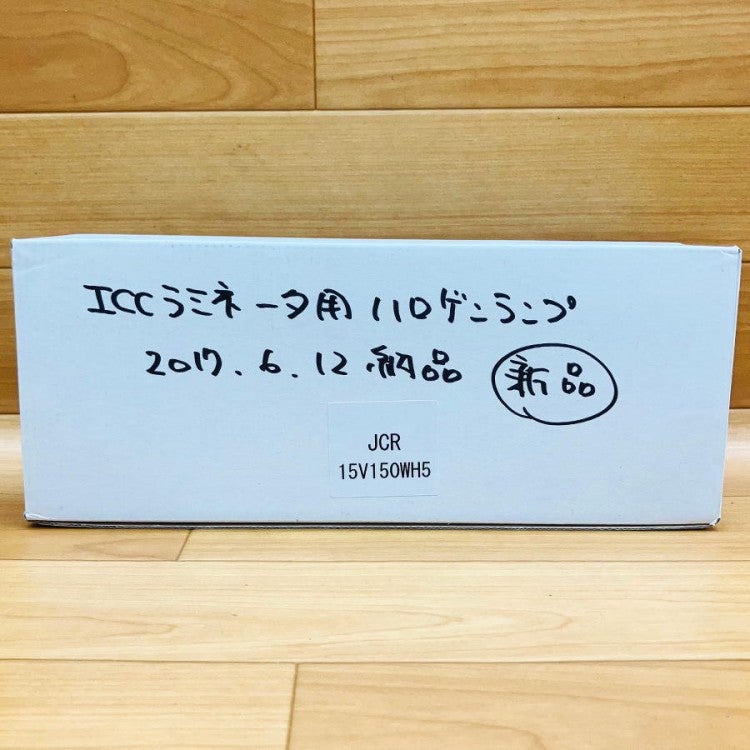 ICCラミネータ用ハロゲンランプ
2017.6.12 納品 新品
JCR
15V150WH5